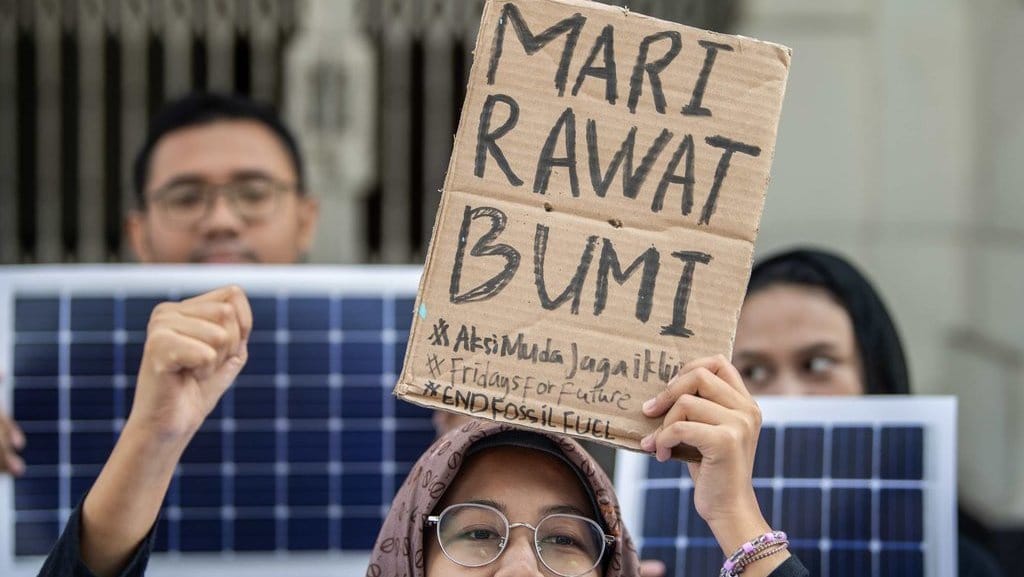 MARI
RAWAT
BUMI
#AksiMudaJagaiklim
#FridaysforFuture
#ENDFOSSILFUEL